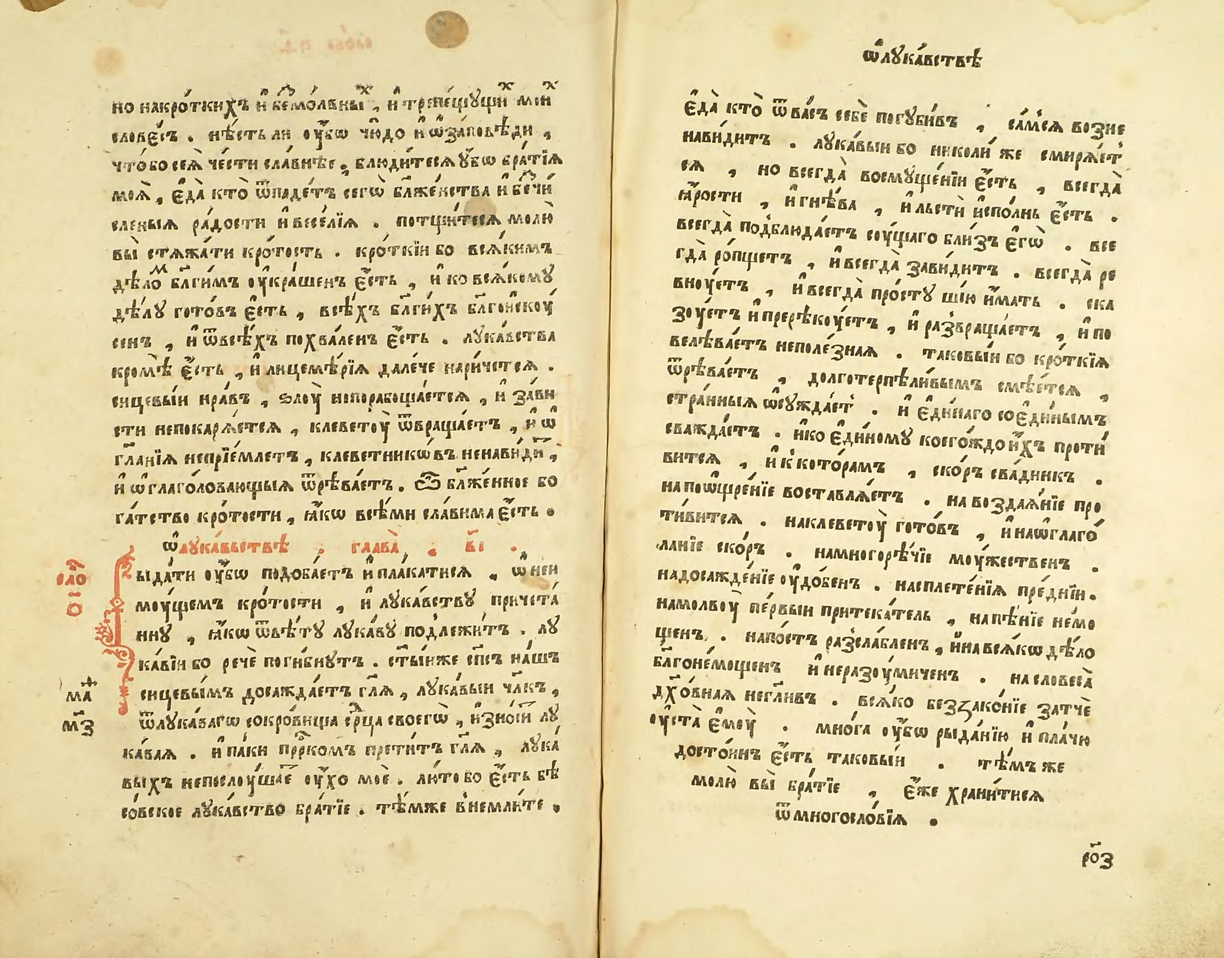 но накро́ткихъ и҆ безмо́лвныⷯ, и҆ трепе́щущиⷯ моиⷯ
слове́съ . нѣ́сть ли ᲂу҆́бѡ чю́до и҆ ѡ҆за́повѣди ,
что́ бо сеѧ̀ че́сти сла́внѣе, блюди́тесѧ ᲂу҆́бѡ бра́тїѧ
моѧ̀, є҆да̀ кто̀ ѿпаде́тъ сегѡ̀ бл҃же́нства и҆ бе́счи
сленыѧ ра́дости и҆ весе́лїѧ . потщи́тесѧ молю̀
вы̀ стѧжа́ти кро́тость . кро́ткїи бо всѧ́кимъ
дѣ́лоⷨ бл҃ги́мъ ᲂу҆кра́шенъ є҆́сть , и҆ ко всѧ́кому
дѣ́лу гото́въ є҆́сть , всѣ́хъ бл҃ги́хъ бл҃гои҆скоу́
сенъ , и҆ ѿвсѣ́хъ похва́ленъ є҆́сть . лука́вства
кромѣ̀ є҆́сть , и҆ лицемѣ́рїѧ дале́че нарича́етсѧ .
сицевы́и нра́въ , ѕлоу̀ непорабоща́етсѧ , и҆ за́ви
сти непокарѧ́етсѧ , клеветоу̀ ѿвраща́етъ , и҆ ѡ҆
гл҃а́нїѧ непрїе́млетъ , клеветникѡ́въ ненави́диⷮ ,
и҆ ѡ҆глаго́ловающыѧ ѿрѣва́етъ. Ѽ бл҃же́нное бо
га́тство кро́тости , ꙗ҆́кѡ всѣ́ми сла́вима є҆́сть .
ѡ҆лука́вьствѣ . глава̀ . в҃і .
сло
о҃і
Рыда́ти ᲂу҆́бѡ подоба́етъ и҆ пла́катисѧ , ѡ҆ неи
моу́щемъ кро́тости , и҆ лука́вству причета́
нну , ꙗ҆́кѡ ѿвѣ́ту лука́ву подлежи́тъ . лу
ка́вїи бо речѐ поги́бнутъ . ст҃ы́иже сп҃съ на́шъ
сицевы́мъ досажда́етъ гл҃ѧ , лука́выи чл҃къ ,
маⷴ
м҃з
ѿлука́вагѡ сокро́вища се́рдца своегѡ̀ , и҆зно́ситъ лу
ка́ваѧ . и҆ па́ки пр҃ро́комъ прети́тъ гл҃ѧ , лука́
выхъ непослоу́шаеⷮ ᲂу҆́хо моѐ . лю́то бо є҆́сть бѣ
со́вское лука́вство бра́тїе . тѣ́мже внемли́те .
ѡ҆лука́вствѣ
є҆да̀ кто̀ ѿва́съ себѐ погуби́въ , са́мсѧ возне
нави́дитъ . лука́выи бо николи́ же смирѧ́ет
сѧ , но всегда̀ возмуще́нїи є҆́сть , всегда̀
ꙗ҆́рости , и҆ гнѣ́ва , и҆ льстѝ и҆спо́лнь є҆́сть .
всегда̀ подблюда́етъ соу́щаго бли́зъ є҆гѡ̀ . все
гда̀ ро́пщетъ , и҆ всегда̀ зави́дитъ . всегда̀ ре
вноу́етъ , и҆ всегда̀ про́сту шїю и҆́мать . ска
зоу́етъ и҆ прерѣкоу́етъ , и҆ развраща́етъ , и҆ по
велѣва́етъ неполе́знаѧ . таковы́и бо кро́ткїѧ
ѿрѣва́етъ , долготерпѣли́вымъ смѣе́тсѧ ,
стра́нныѧ ѡ҆сужда́етъ . и҆ є҆ди́наго соє҆ди́нымъ
сважда́етъ . и҆ко є҆ди́ному коего́ждо и҆́хъ проти́
витсѧ , и҆ к кото́рамъ , ско́ръ сва́дникъ .
на поѡ҆щре́нїе воставлѧ́етъ . на воздаѧ́нїе про
ти́витсѧ . наклеветоу̀ гото́въ , и҆ наѡ҆глаго́
ланїе ско́ръ . намногорѣ́чїе моу́жественъ .
надосажде́нїе ᲂу҆до́бенъ . насплете́нїѧ пре́днїи.
намолвоу̀ пе́рвыи притека́тель , напѣ́нїе немо
щенъ . напо́стъ разсла́бленъ , и҆навсѧ́кѡ дѣ́ло
бл҃го не́мощенъ и҆ неразоу́миченъ . насловеса̀
дх҃о́внаѧ негли́въ . всѧ́ко беззако́нїе затче
ᲂу҆ста̀ є҆моу̀ . мно́га ᲂу҆́бѡ рыда́нїю и҆ пла́чю
досто́инъ є҆́сть таковы́и . тѣ́мъ же
молю̀ вы̀ бра́тїе , є҆́же храни́тисѧ
ѿ многосло́вїѧ .
ро҃з